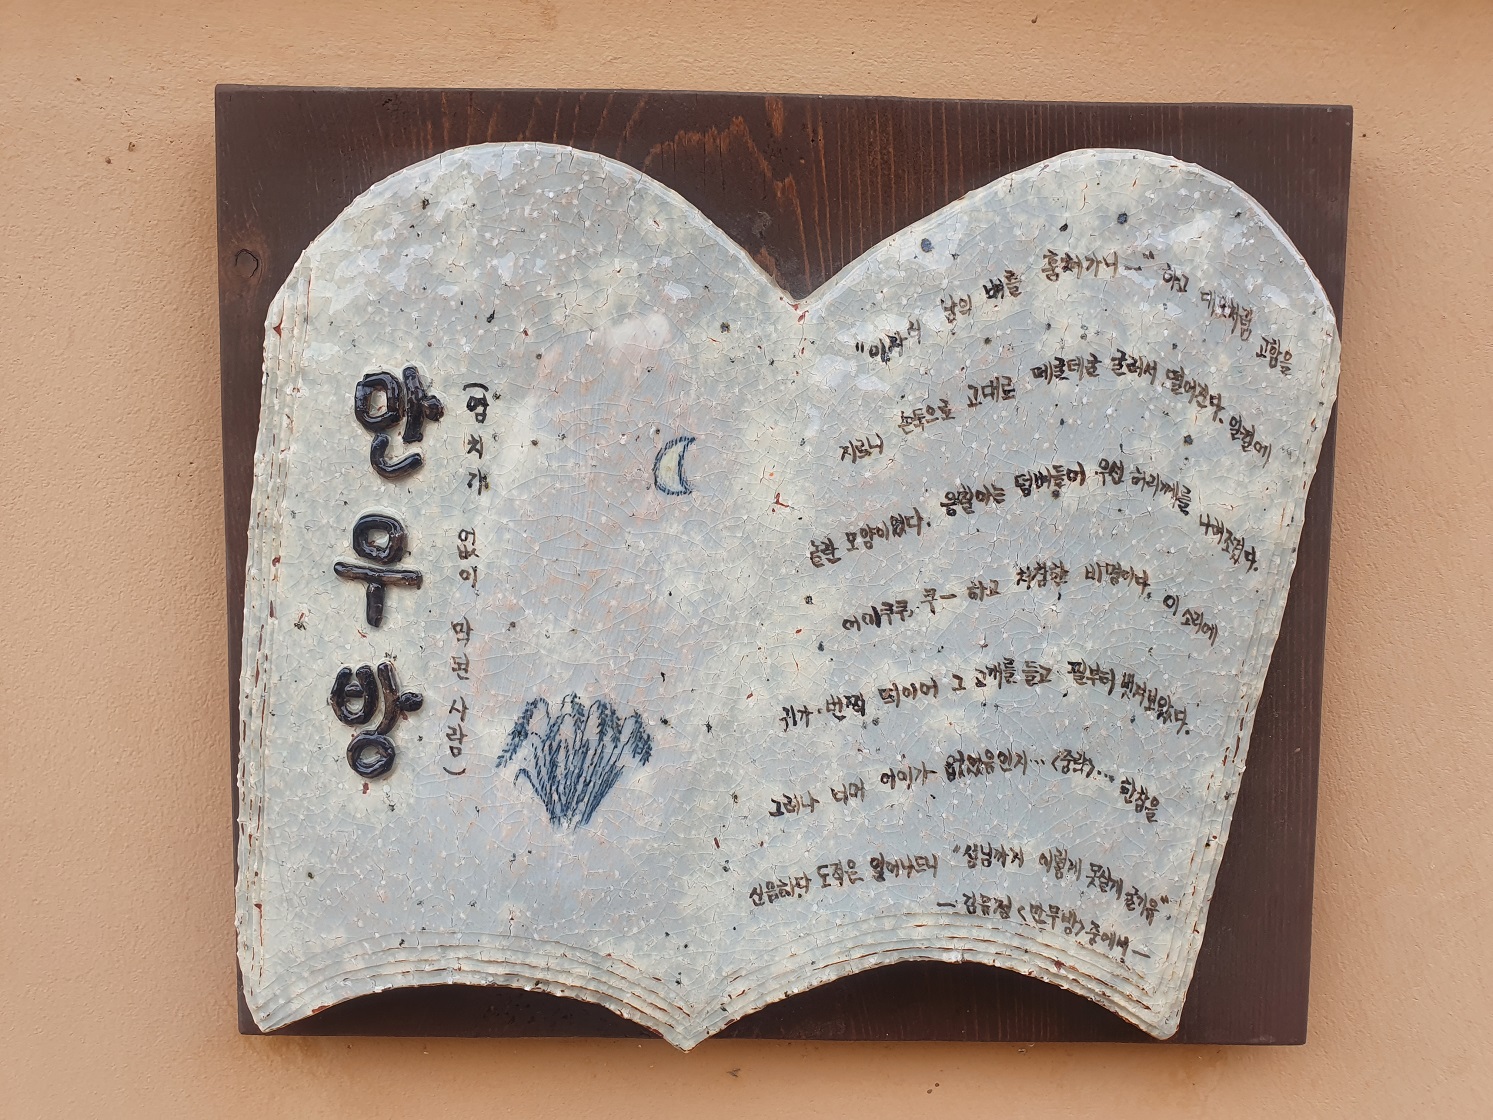 만무방
(염치가 없이 막된 사람)
"이놈아 남의 벼를 훔쳐가니—" 하고 대포처럼 고함을
지르니 논둑으로 고대로 데굴데굴 굴러서 떨어진다. 얼결에
놀란 모양이었다. 응칠이는 덤벼들어 우선 허리께를 나려조겼다.
어이쿠쿠, 쿠— 하고 처참한 비명이다. 이 소리에
귀가 번쩍 띄이어 그 고개를 들고 필부터 벗겨보았다.
그러나 너머 어이가 없었음인지… <중략>… 한참을
신음하다 도적은 일어나드니 "성님까지 이렇게 못살게 굴기유"
— 김유정 <만무방> 중에서 —